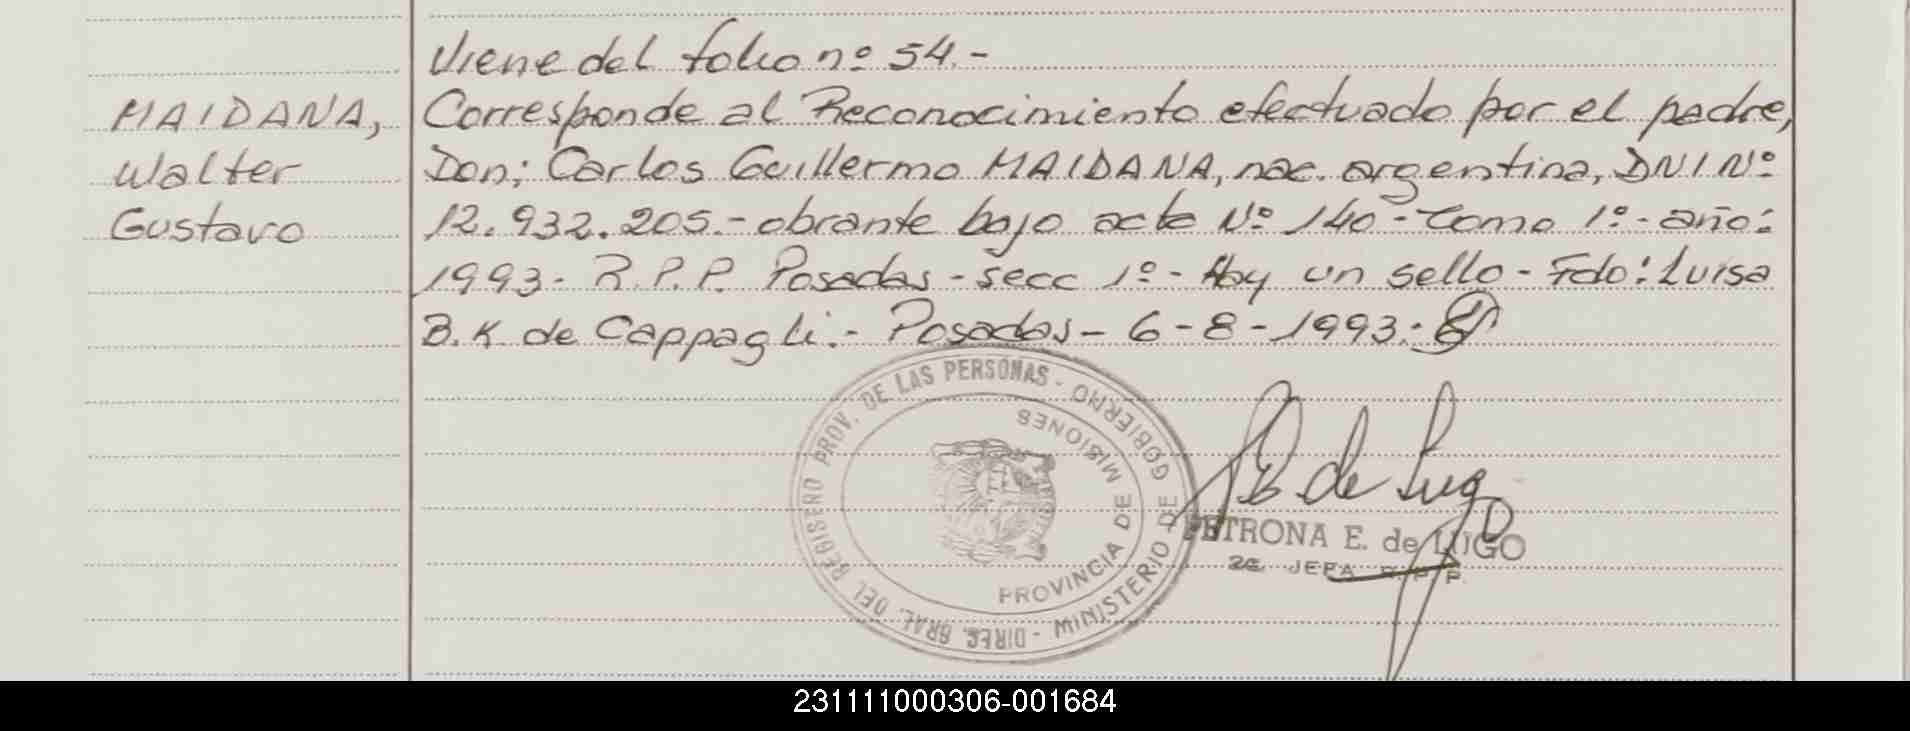 Viene del folio nº 54.-
MAIDANA,
Walter
Gustavo
Corresponde al Reconocimiento efectuado por el padre,
Don; Carlos Guillermo MAIDANA, nac. argentina, DNI Nº
12.932.205.- obrante bajo acta Nº 140 - Tomo 1º.- año:
1993.- R.P.P. Posadas - secc 1º - Hay un sello - Fdo: Luisa
B.K. de Cappagli.- Posadas - 6-8-1993.-
DIREC. GRAL. DEL REGISTRO PROV. DE LAS PERSONAS - MINISTERIO DE GOBIERNO
PROVINCIA DE MISIONES
E. de Lugo
PETRONA E. de LUGO
2ª JEFA R. P. P.
231111000306-001684